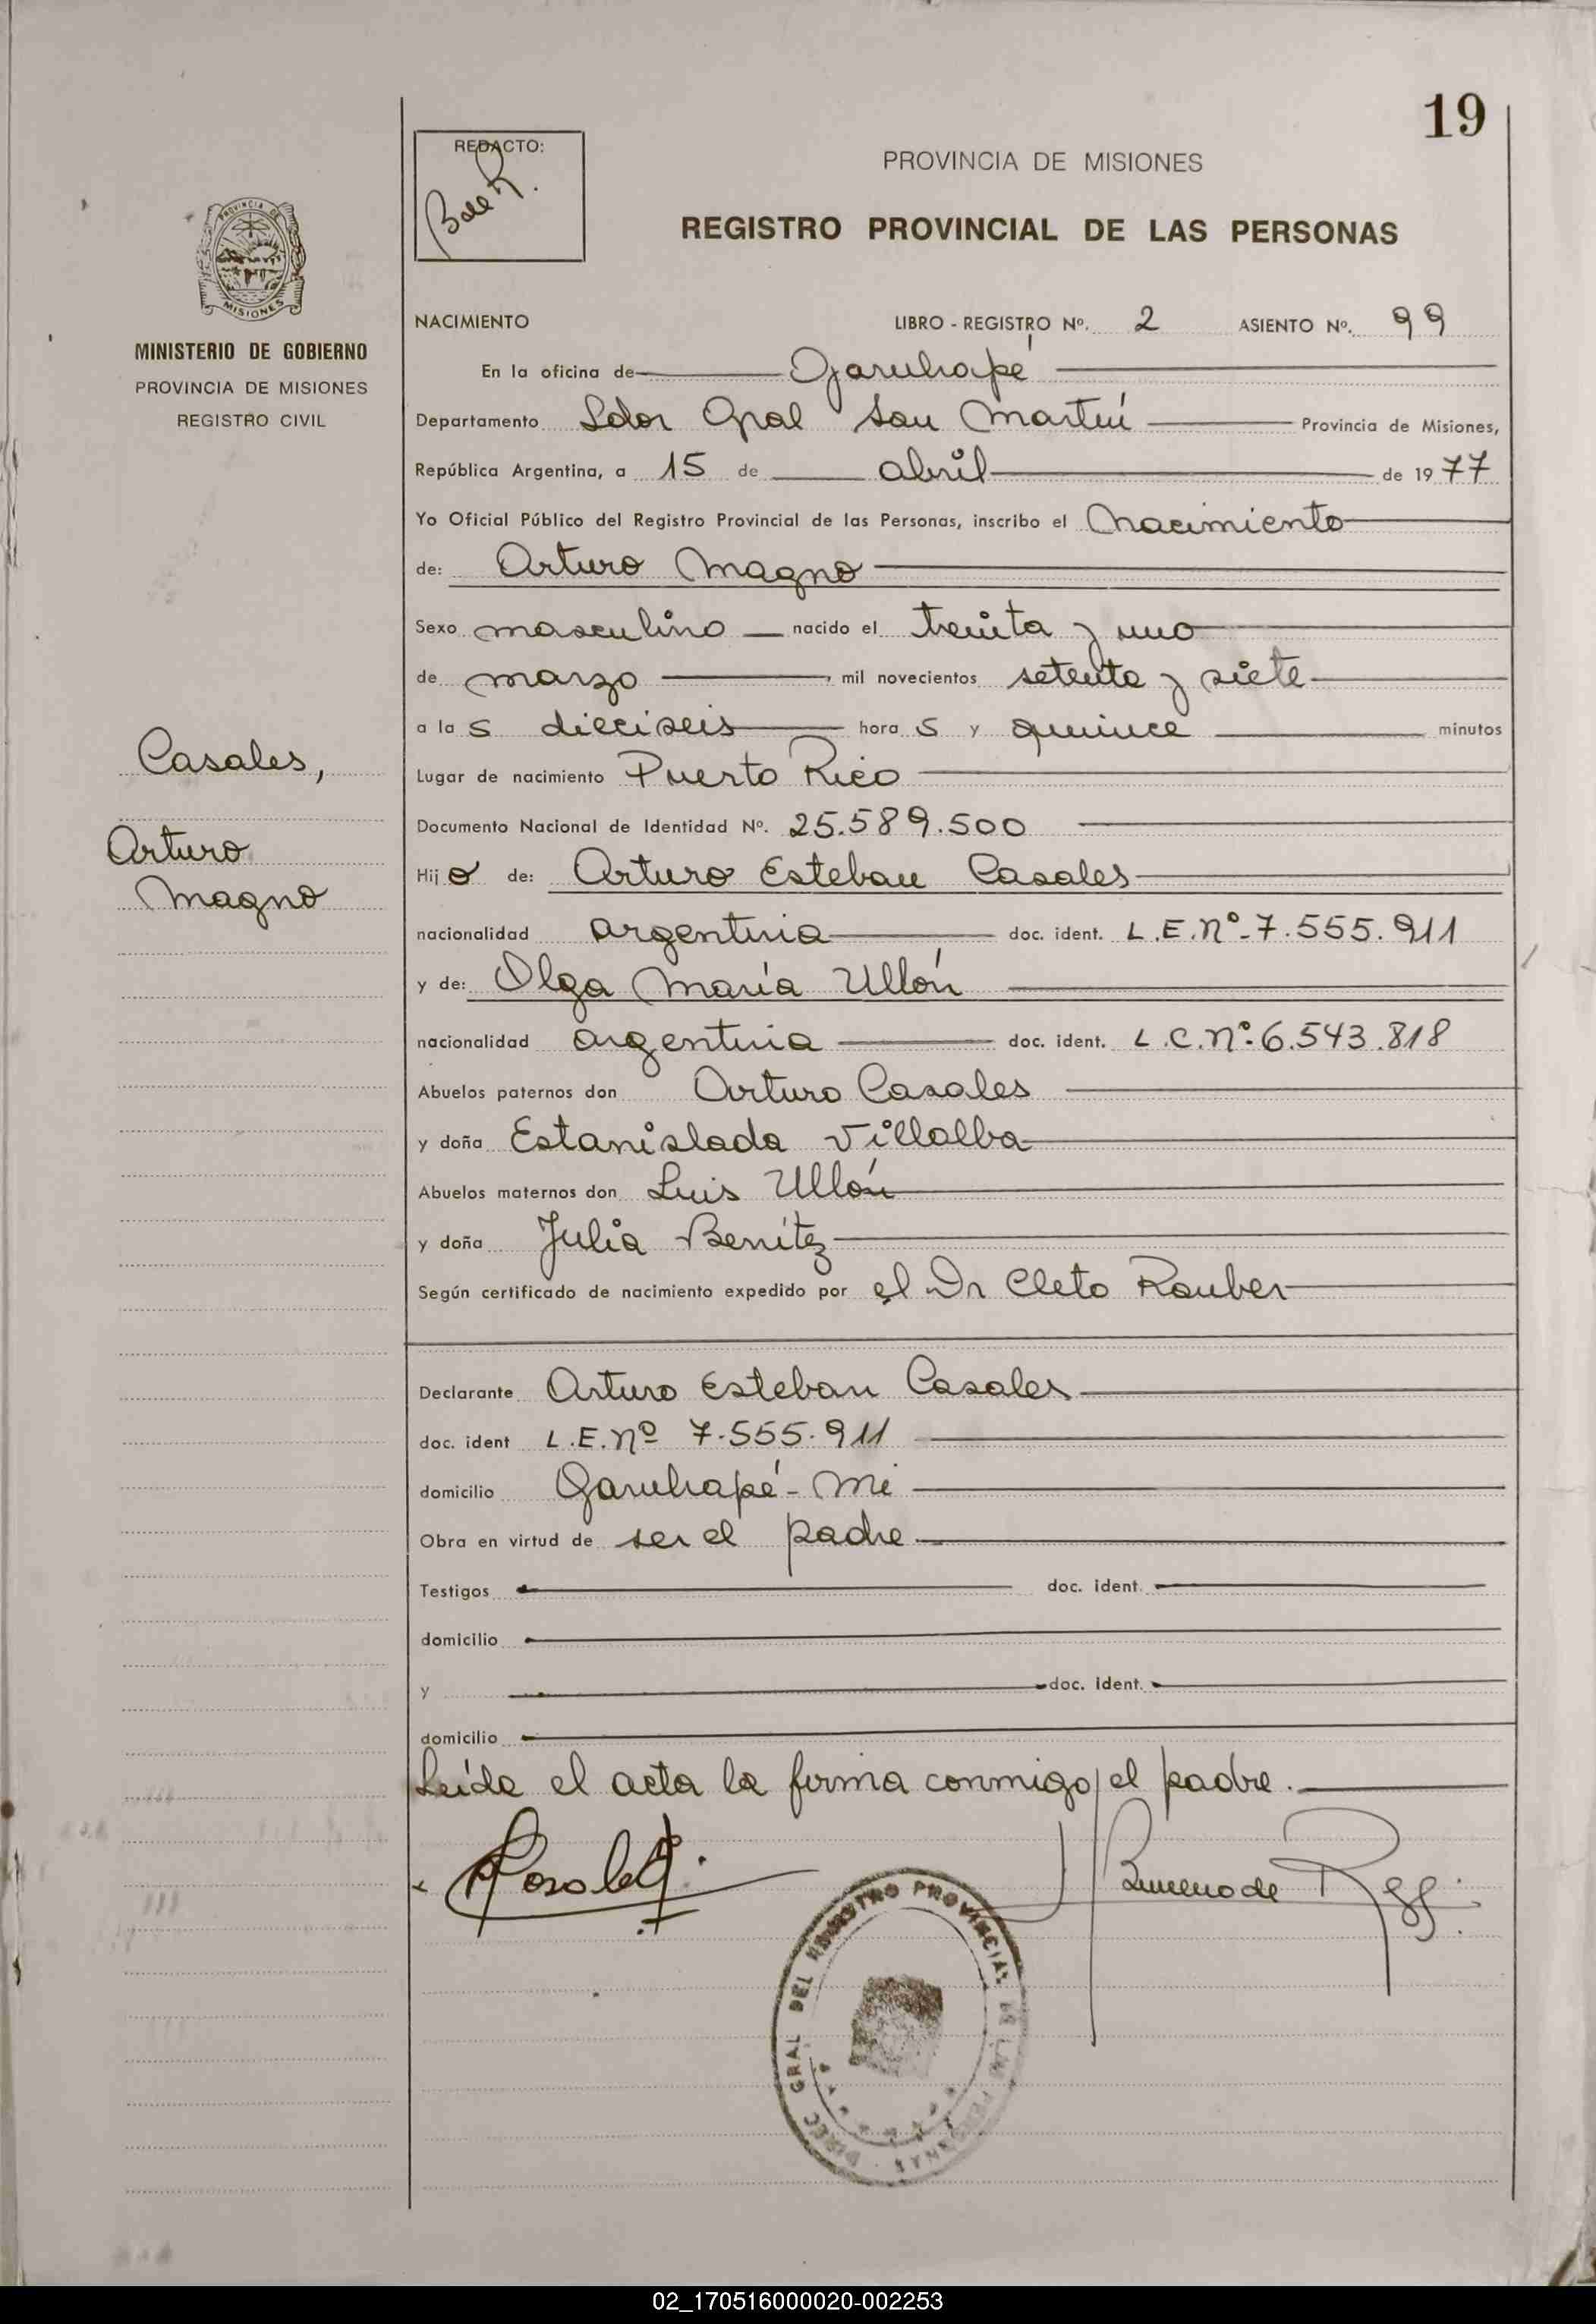 19
REDACTO:
PROVINCIA DE MISIONES
REGISTRO PROVINCIAL DE LAS PERSONAS
PROVINCIA DE
MISIONES
MINISTERIO DE GOBIERNO
PROVINCIA DE MISIONES
REGISTRO CIVIL
Casales,
Arturo
Magno
NACIMIENTO LIBRO - REGISTRO Nº. 2 ASIENTO Nº. 99
En la oficina de Garuhapé
Departamento Ldor Gral San Martín Provincia de Misiones,
República Argentina, a 15 de abril de 1977
Yo Oficial Público del Registro Provincial de las Personas, inscribo el Nacimiento
de: Arturo Magno
Sexo masculino nacido el treinta y uno
de marzo mil novecientos setenta y siete
a las dieciseis horas y quince minutos
Lugar de nacimiento Puerto Rico
Documento Nacional de Identidad Nº. 25.589.500
Hijo de: Arturo Esteban Casales
nacionalidad argentina doc. ident. L.E.Nº-7.555.911
y de: Olga María Ullón
nacionalidad argentina doc. ident. L.C.Nº-6.543.818
Abuelos paternos don Arturo Casales
y doña Estanislada Villalba
Abuelos maternos don Luis Ullón
y doña Julia Benítez
Según certificado de nacimiento expedido por el Dr Cleto Rauber
Declarante Arturo Esteban Casales
doc. ident L.E.Nº 7.555.911
domicilio Garuhapé-Mi
Obra en virtud de ser el padre
Testigos doc. ident.
domicilio
y doc. ident.
domicilio
Leída el acta la firma conmigo el padre.
DIREC GRAL DEL REGISTRO PROVINCIAL DE LAS PERSONAS
02_170516000020-002253